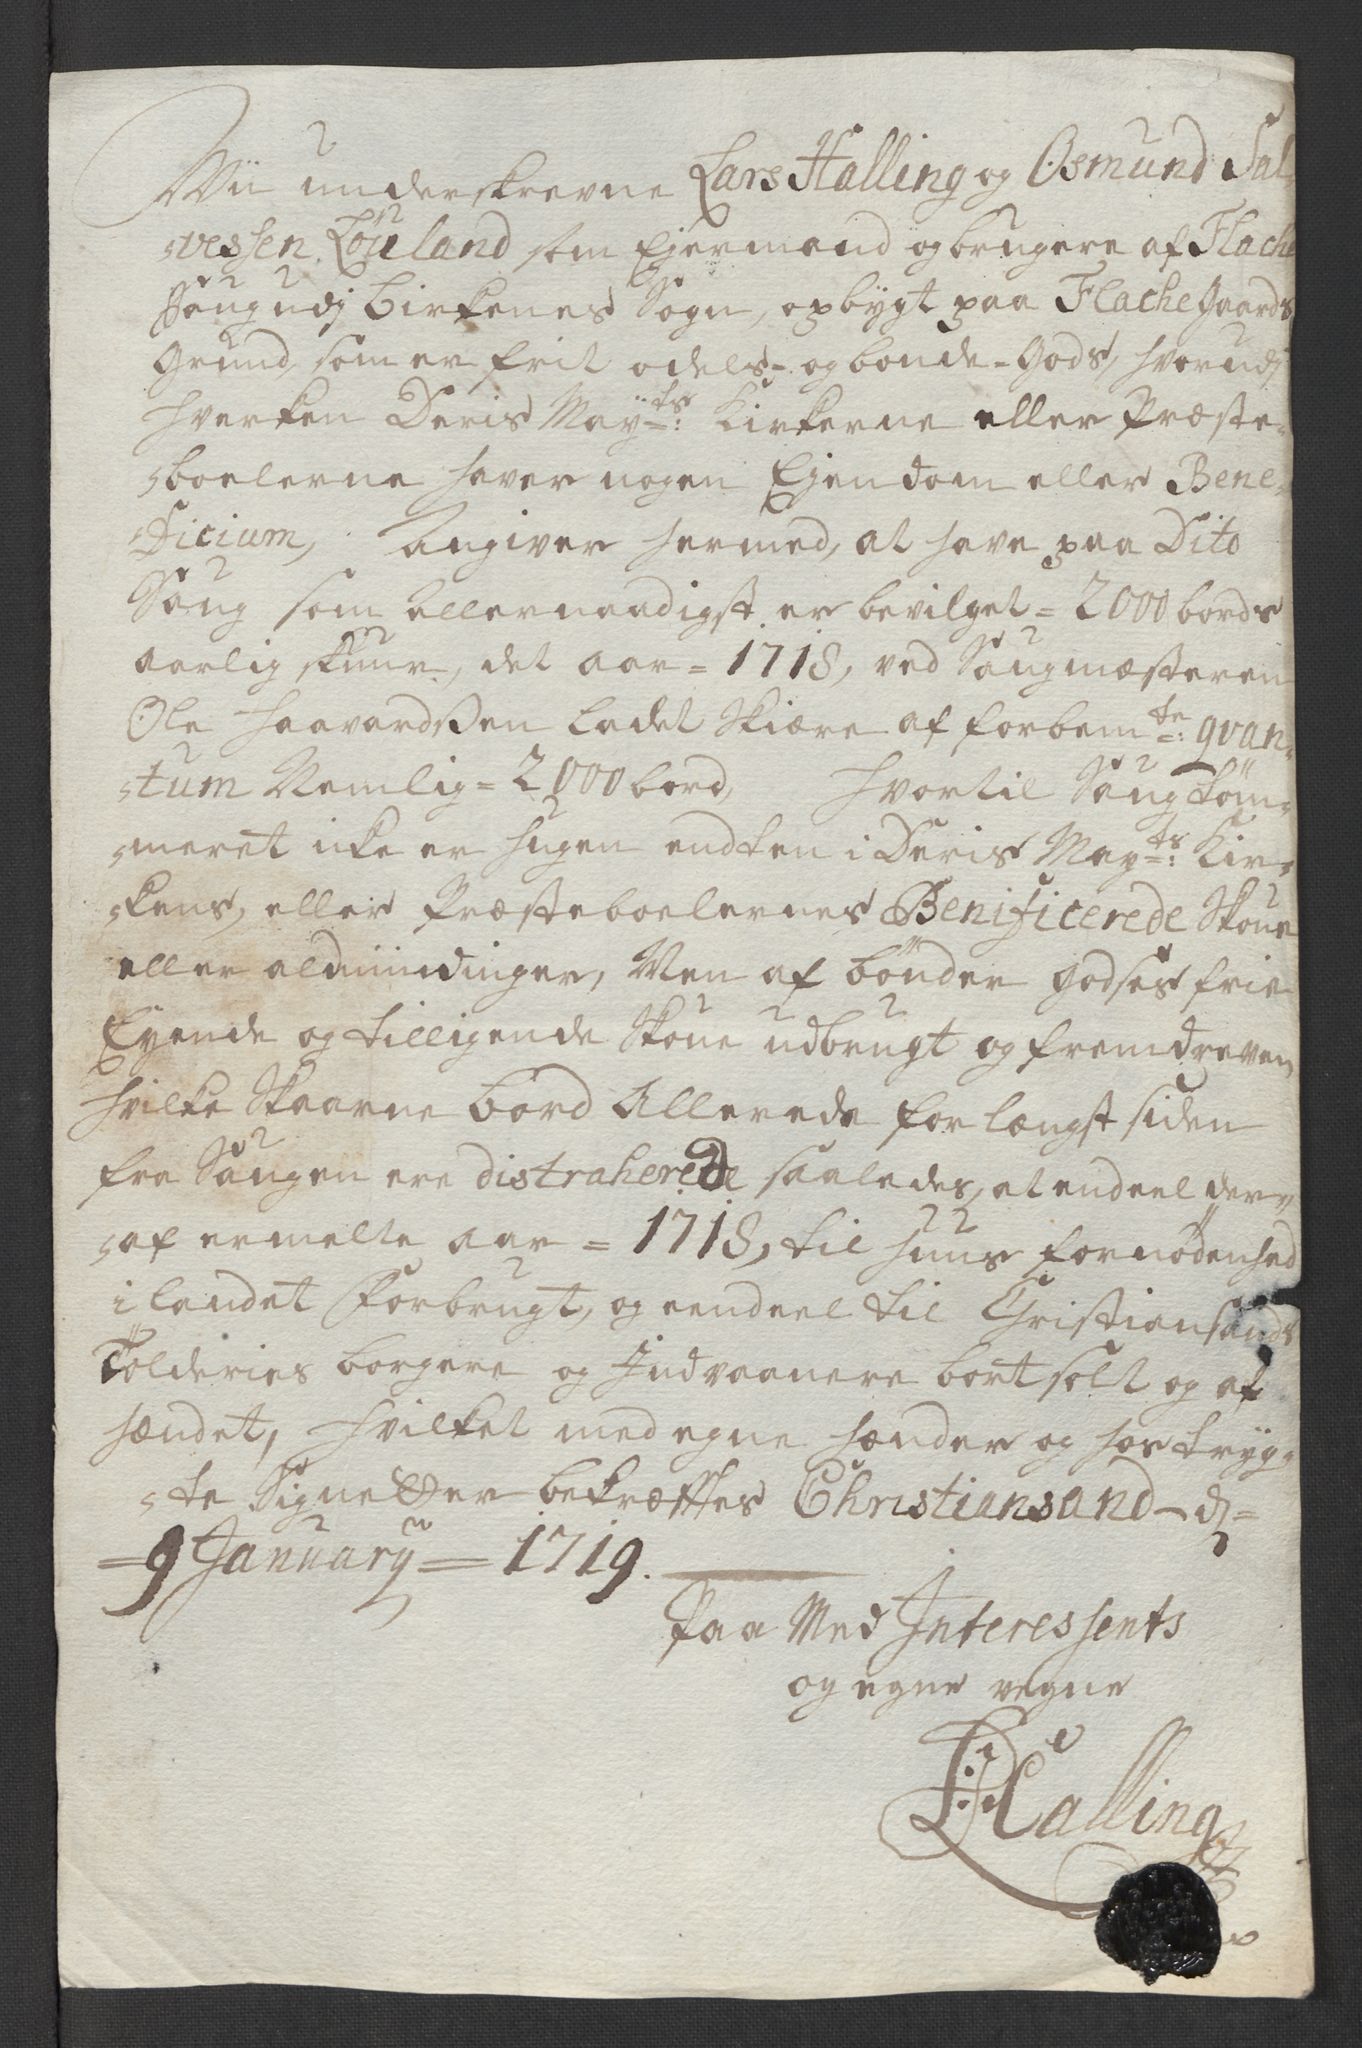 Wii underskrevne Lars Halling og Osmund Sal-
-vessen Löuland som Ejermænd og brugere af Flache
Saug udj Birkenes Sogn, opbygt paa Flache Gaards
Grund, som er frit odels- og bonde-Gods, hvorudj
hverken Deris May.ts: Kirkerne eller Præste-
-boelerne haver nogen Ejendom eller Bene-
-ficium, Angiver hermed, at have paa Dito
Saug som Allernaadigst er bevilget = 2000 bords
aarlig skuur, det aar = 1718, ved Saugmæsteren
Ole Haavardßen ladet Skiære af forbem.te: qvan-
-tum Nemlig = 2000 bord, hvortil Saugtöm-
-meret icke er hugen endten i Deris May.ts: Kir-
-kens, eller Præsteboelernes Benificerede Skoue
eller almindinger, Men af bönder Godses frie
Eyende og tilligende Skoue udbrugt og fremdreven
hvilke Skaarne bord Allerede for længst siden
fra Saugen ere distraherede saaledes, at endeel der-
-af ermelte aar = 1718, til huus fornödenhed
i landet Forbrugt, og eendeel til Christiansands
Tolderies borgere og Indvaanere bortsolt og af
hændet, hvilket med egne hænder og hos tryg-
-te Signetter bekræfftes Christiansand - dj =
= 9 January = 1719.
Paa Med Interessents
og egne vegne
L: Halling